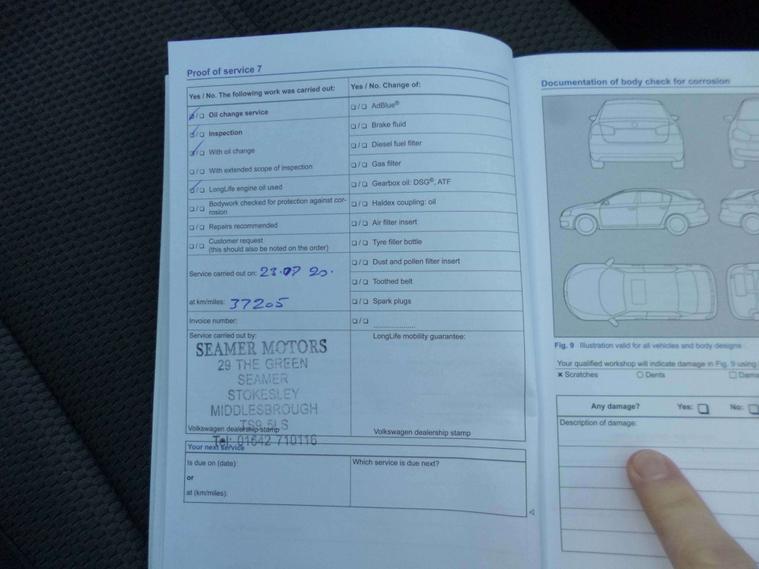 Proof of service 7
Yes / No. The following work was carried out:
Oil change service
Inspection
With oil change
With extended scope of inspection
LongLife engine oil used
Bodywork checked for protection against cor-
rosion
Repairs recommended
Customer request
(this should also be noted on the order)
Service carried out on: 23.07 20.
at km/miles: 37205
Invoice number:
Service carried out by:
SEAMER MOTORS
29 THE GREEN
SEAMER
STOKESLEY
MIDDLESBROUGH
TS9 5LS
Volkswagen dealership stamp
Tel: 01642 710116
Yes / No. Change of:
AdBlue®
Brake fluid
Diesel fuel filter
Gas filter
Gearbox oil: DSG®, ATF
Haldex coupling: oil
Air filter insert
Tyre filler bottle
Dust and pollen filter insert
Toothed belt
Spark plugs
LongLife mobility guarantee:
Volkswagen dealership stamp
Your next service
Is due on (date):
or
at (km/miles):
Which service is due next?
Documentation of body check for corrosion
Fig. 9 Illustration valid for all vehicles and body designs
Your qualified workshop will indicate damage in Fig. 9 using
x Scratches O Dents
Any damage? Yes: No:
Description of damage: